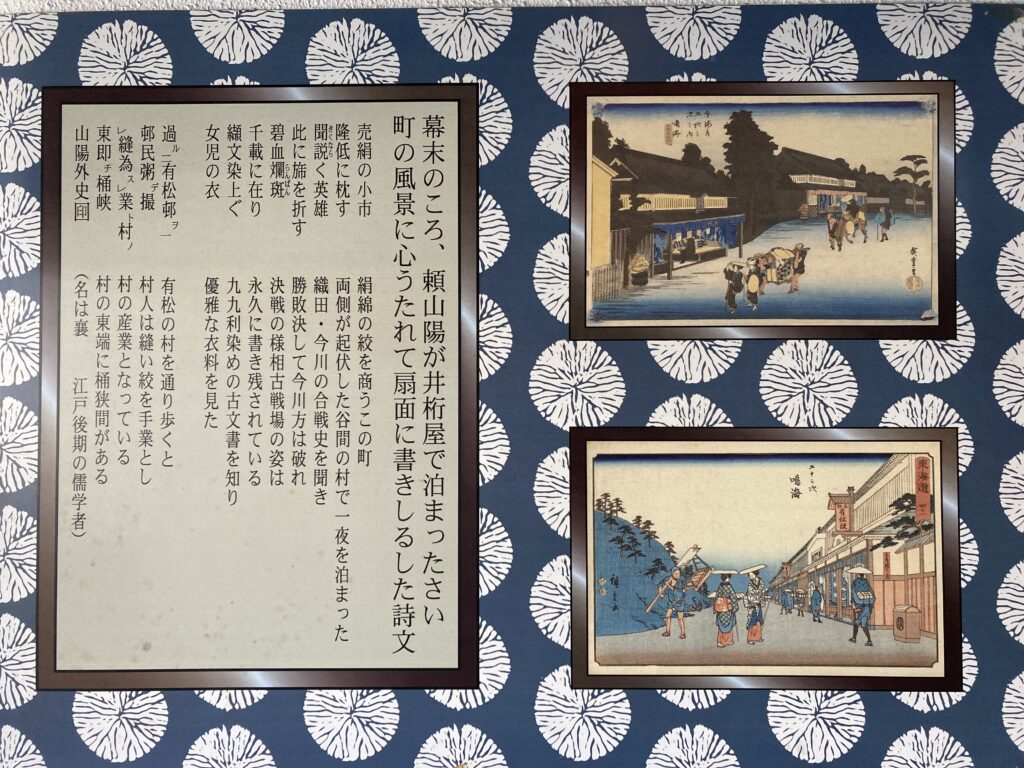 幕末のころ、頼山陽が井桁屋で泊まったさい
町の風景に心うたれて扇面に書きしるした詩文
売絹の小市
隆低に枕す
聞説く英雄
此に旆を折す
碧血斕斑
千載に在り
纈文染上ぐ
女児の衣
過ルニ有松邨ヲ一
邨民粥デ撮
レ縫為スレ業ト村ノ
東即チ桶峡
山陽外史印
絹綿の絞を商うこの町
両側が起伏した谷間の村で一夜を泊まった
織田・今川の合戦史を聞き
勝敗決して今川方は破れ
決戦の様相古戦場の姿は
永久に書き残されている
九九利染めの古文書を知り
優雅な衣料を見た
有松の村を通り歩くと
村人は縫い絞を手業とし
村の産業となっている
村の東端に桶狭間がある
（名は襄　江戸後期の儒学者）
東海道
五十三次之内
鳴海
廣重画
東海道
五十三次
鳴海